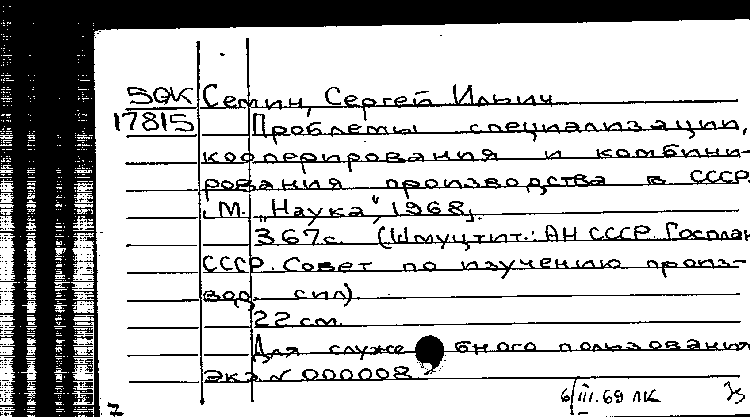 50К Семин, Сергей Ильич
17815 Проблемы специализации,
кооперирования и комбини-
рования производства в СССР.
М. „Наука", 1968.
367с. (Шмуцтит.: АН СССР. Госплан
СССР. Совет по изучению произ-
вод. сил).
22 см.
Для служебного пользования
экз. № 000008
6/III.69 ЛК
7